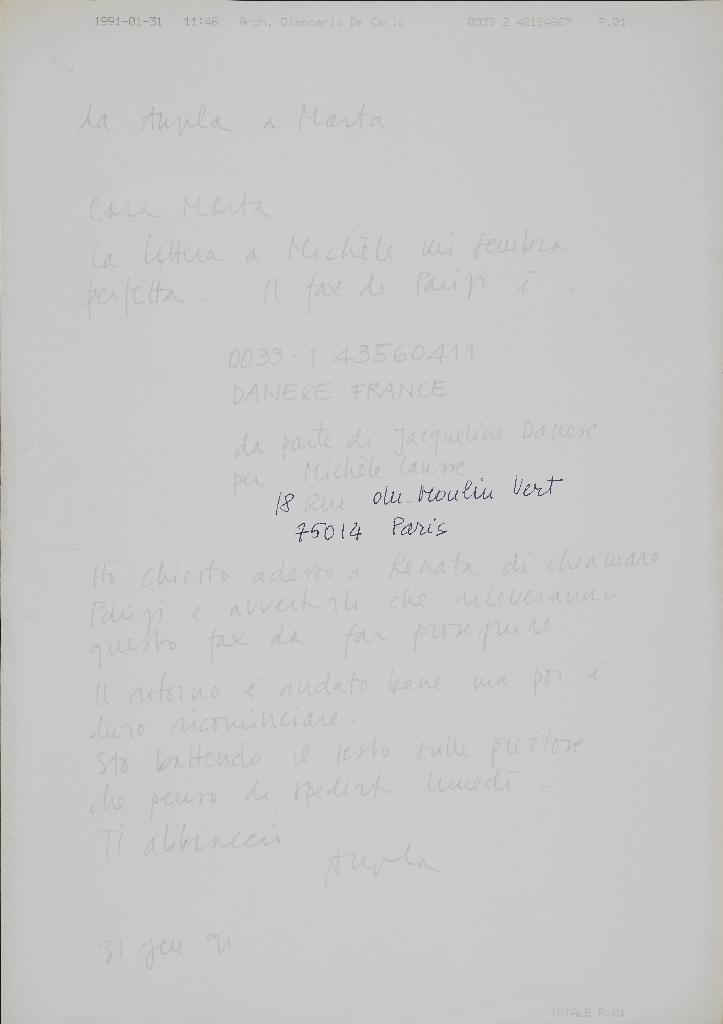 1991-01-31 11:46 Arch. Giancarlo De Carlo 0039 2 48194667 P.01
da Angela a Marta
Cara Marta
la lettera a Michèle mi sembra
perfetta. Il fax di Parigi è :
0033-1-43560411
DANESE FRANCE
da parte di Jacqueline Danese
per Michèle
18 Rue du Moulin Vert
75014 Paris
Ho chiesto adesso a Renata di chiamare
Parigi e avvertirli che riceveranno
questo fax da far proseguire.
Il ritorno è andato bene ma poi è
duro ricominciare.
Sto battendo il testo sulle preziose
che penso di spedirti lunedì -
Ti abbraccio
Angela
31 gen 91
TOTALE P.01